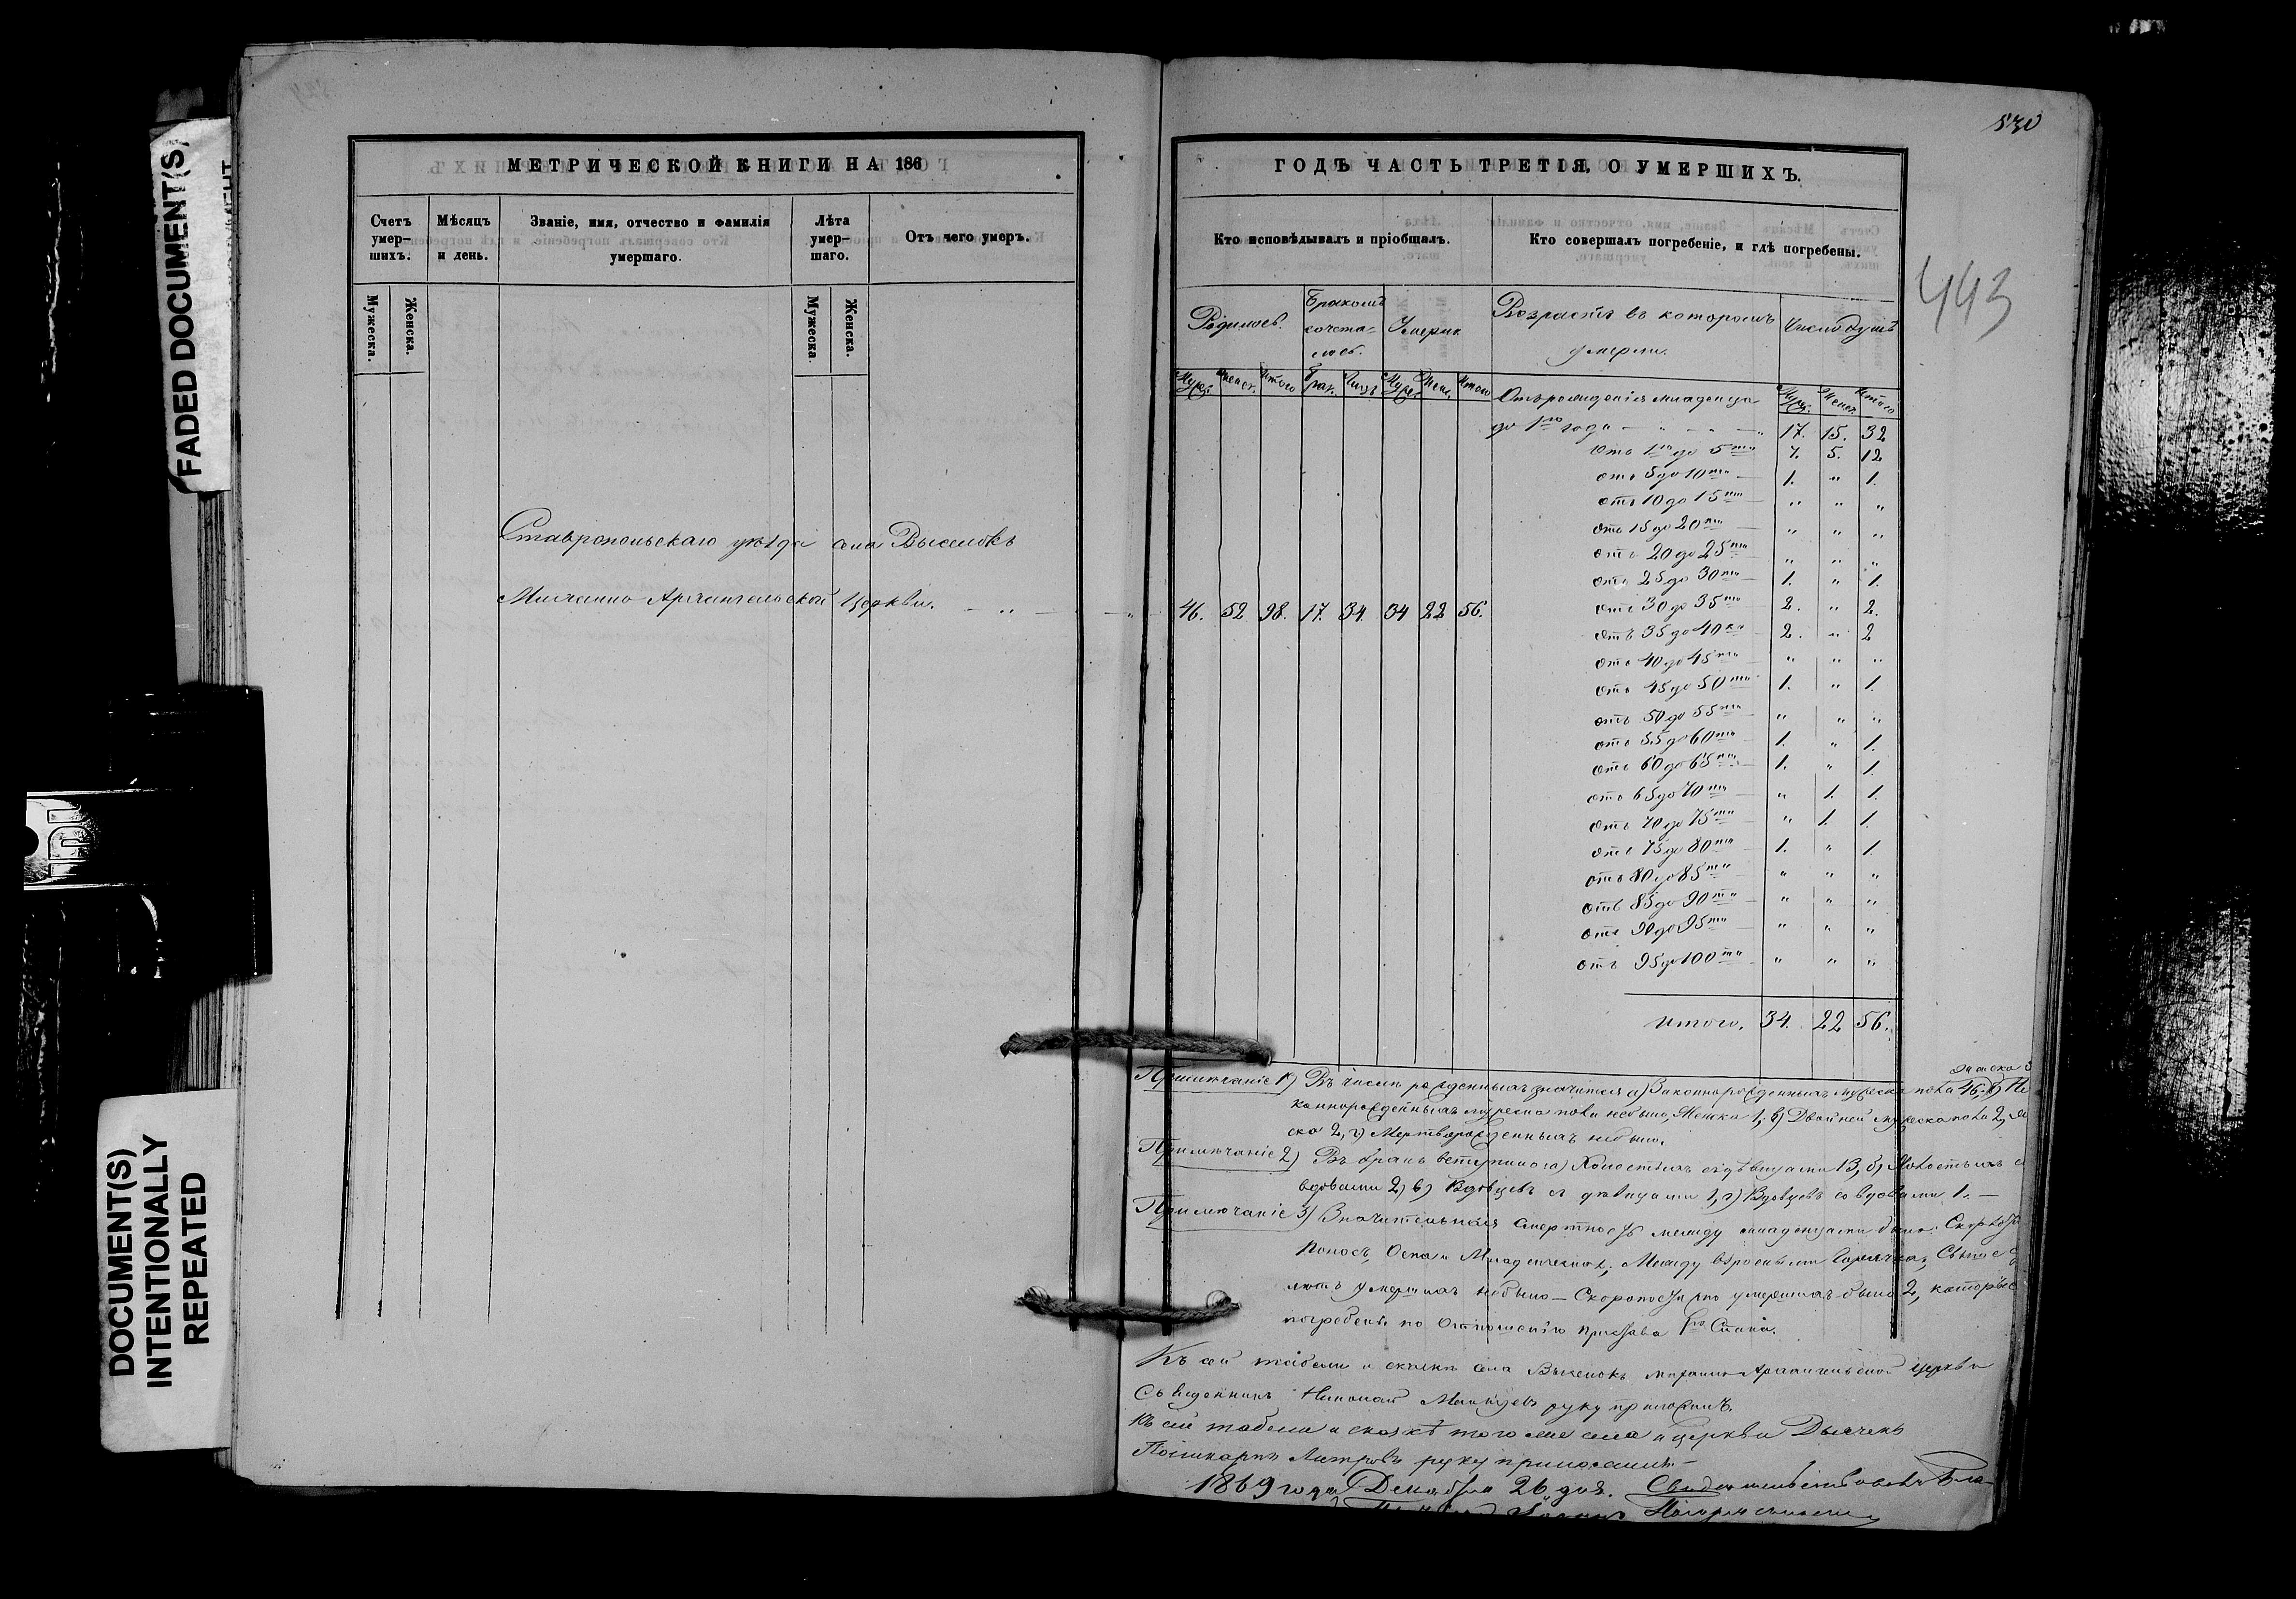 FADED DOCUMENT(S)
DOCUMENT(S)
INTENTIONALLY
REPEATED
МЕТРИЧЕСКОЙ КНИГИ НА 186
Счетъ умер-шихъ.
Мужеска.
Женска.
Мѣсяцъ и день.
Званіе, имя, отчество и фамилія умершаго.
Лѣта умер-шаго.
Мужеска.
Женска.
Отъ чего умеръ.
Ставропольскаго уѣзда села Выселокъ
Михаило Архангельской Церкви. — „ —
530
443
ГОДЪ ЧАСТЬ ТРЕТІЯ, О УМЕРШИХЪ.
Кто исповѣдывалъ и пріобщалъ.
Кто совершалъ погребеніе, и гдѣ погребены.
Родилось.
Бракомъ
сочета-
лось.
Умерло
Возрастъ въ которомъ
умерли.
Число душъ
Муж. Женск. Итого Брак. Лицъ Муж. Жен. Итого
Муж. Женск. Итого
46. 52 98. 17. 34. 34 22 56.
Отъ рожденія младенца
до 1го года — „ — 17. 15. 32
Отъ 1го до 5ти 7. 5. 12
отъ 5 до 10ти 1. „ 1.
отъ 10 до 15ти „ „ „
отъ 15 до 20ти „ „ „
отъ 20 до 25ти „ „ „
отъ 25 до 30ти 1. „ 1.
отъ 30 до 35ти 2. „ 2.
отъ 35 до 40ка 2. „ 2
отъ 40 до 45ти „ „ „
отъ 45 до 50ти 1. „ 1.
отъ 50 до 55ти „ „ „
отъ 55 до 60ти 1. „ 1.
отъ 60 до 65ти 1. „ 1.
отъ 65 до 70ти „ 1. 1.
отъ 70 до 75ти „ 1. 1.
отъ 75 до 80ти 1. „ 1.
отъ 80 до 85ти „ „ „
отъ 85 до 90ти „ „ „
отъ 90 до 95ти „ „ „
отъ 95 до 100ти „ „ „
Итого. 34. 22 56.
Примѣчаніе 1) Въ числѣ рожденныхъ значится а) Законнорожденныхъ мужеска пола 46, б) Не
каннорожденныхъ мужеска пола небыло, Женска 1, в) Двойней мужеска пола 2, же
ска 2, г) Мертворожденныхъ небыло.
Примѣчаніе 2) Въ бракъ вступило а) Холостыхъ съ дѣвицами 13, б) Холостыхъ с
вдовами 2, в) Вдовцевъ съ дѣвицами 1, г) Вдовцевъ со вдовами 1. —
Примѣчаніе 3) Значительная смертность между младенцами была:
Поносъ, Оспа и Младенческая; Между взрослыми Горячка,
умершихъ небыло — Скоропостижно умершихъ было 2, которые
погребены по Отношенію Пристава 1го Стана.
Къ сей табели и сказкѣ села Выселокъ Михаило Архангельской церкви
Священникъ Николай руку приложилъ.
Къ сей табели и сказкѣ того же села и церкви Дьячекъ
руку приложилъ
1869 года Декабря 26 дня. Свидетельствовалъ Бла-